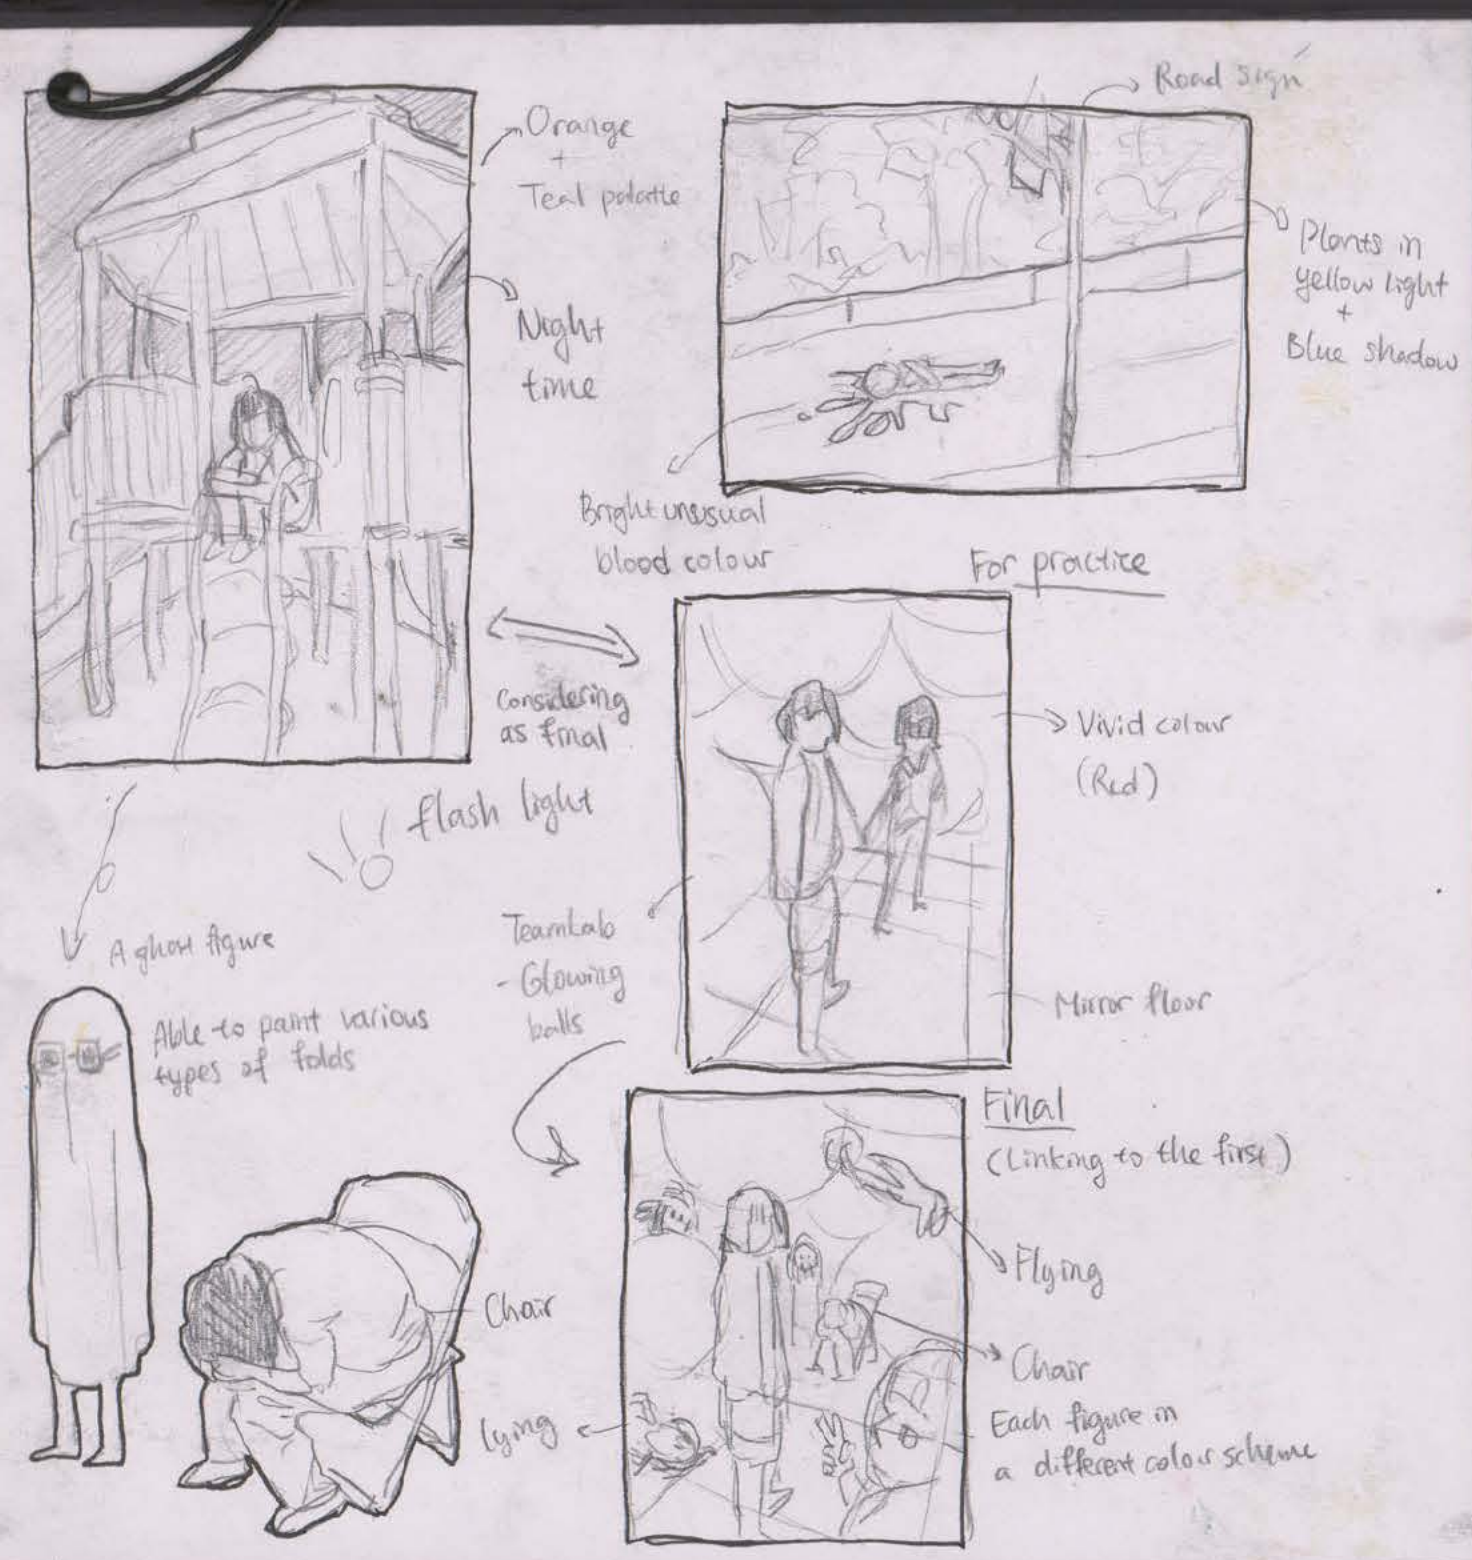 Orange
+
Teal palatte
Night
time
Road sign
Plants in
yellow light
+
Blue shadow
Bright unusual
blood colour
For practice
Considering
as final
Vivid colour
(Red)
flash light
TeamLab
- Glowing
balls
Mirror floor
A ghost figure
Able to paint various
types of folds
Final
(Linking to the first)
Flying
Chair
Chair
lying
Each figure in
a different colour scheme